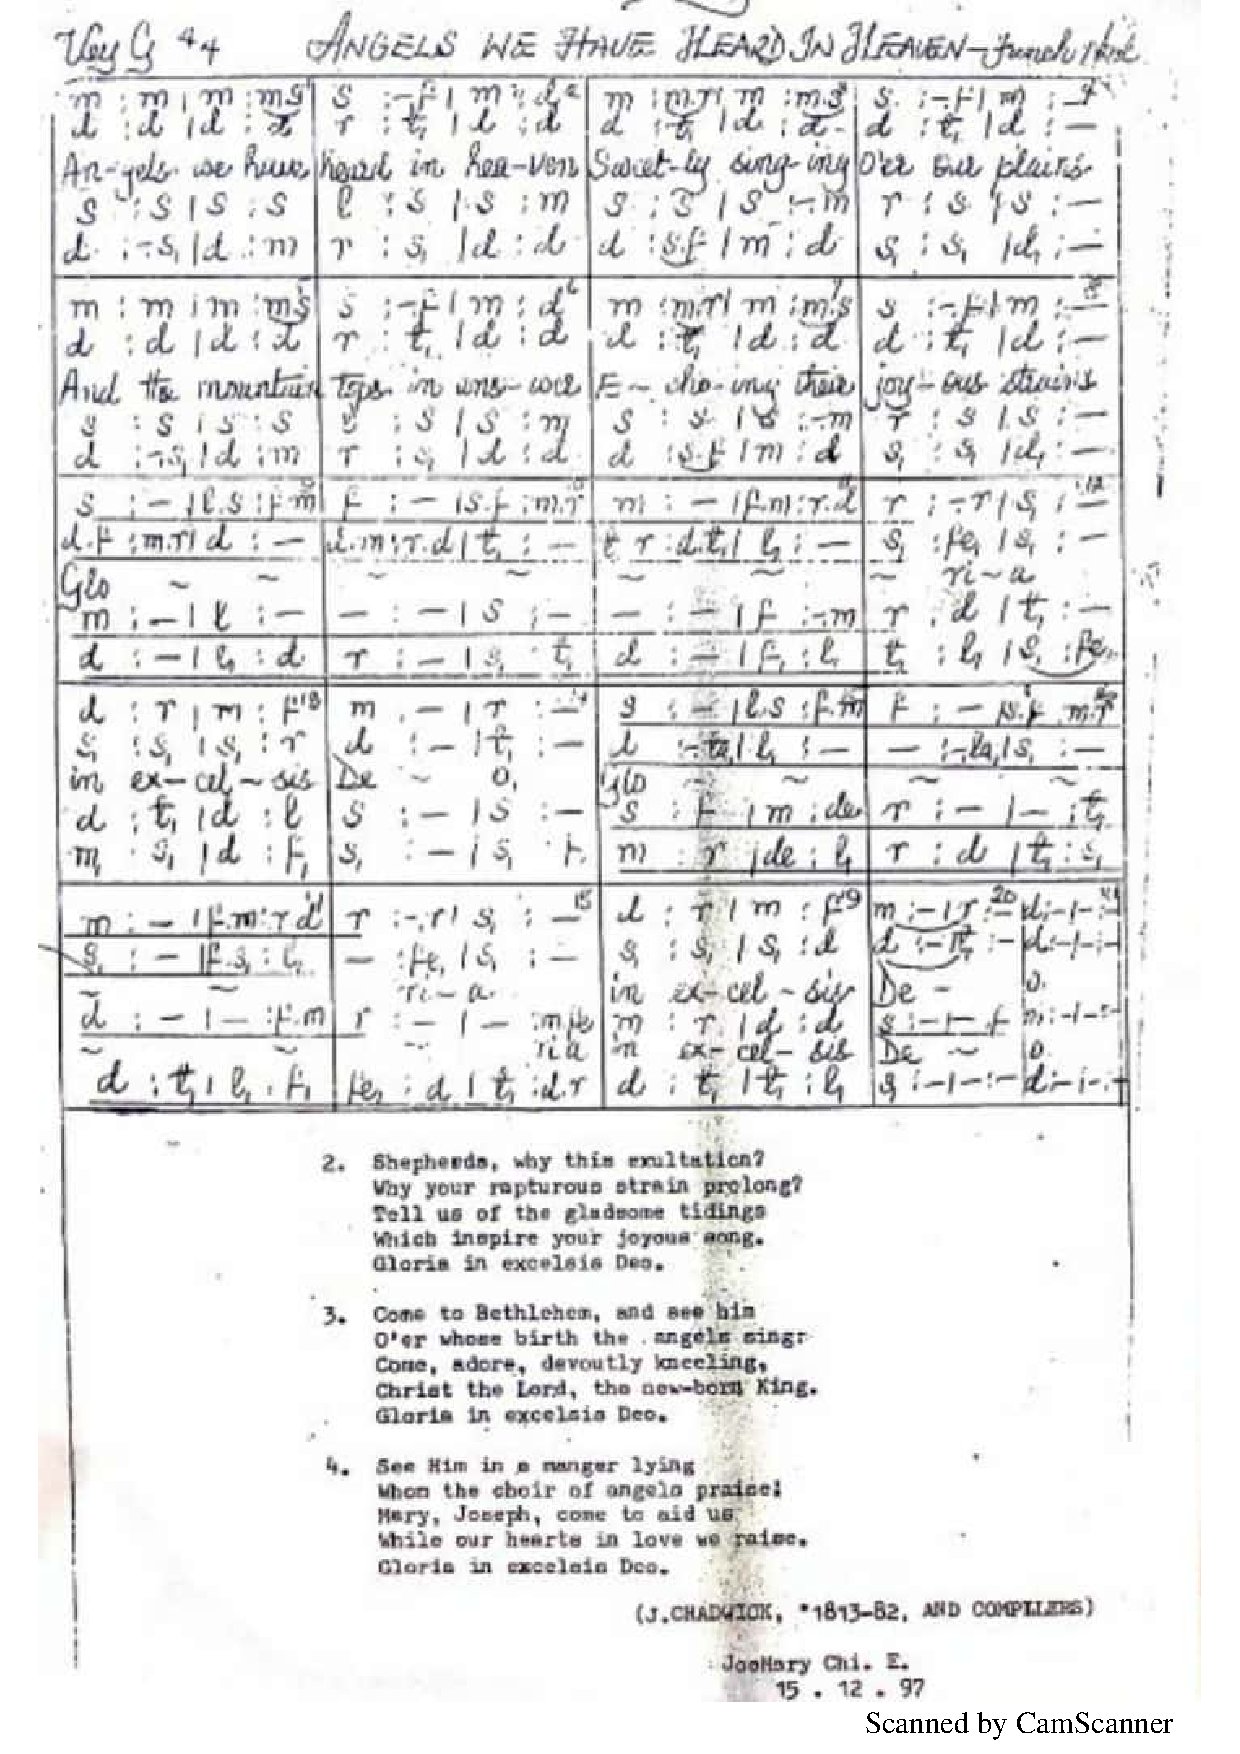 Key G 4 4 ANGELS WE HAVE HEARD IN HEAVEN – French
m : m | m : m.s s : -.f | m : d m : m.r | m : m.s s : -.f | m : -
d : d | d : d r : t, | d : d d : t, | d : d d : t, | d : -
An-gels we have heard in hea-ven Sweet-ly sing-ing O'er our plains
s : s | s : s l : s | s : m s : s | s :-.m r : s | s : -
d : -.s, | d : m r : s, | d : d d : s.f | m : d s, : s, | d, : -
m : m | m : m.s s : -.f | m : d m : m.r | m : m.s s : -.f | m : -
d : d | d : d r : t, | d : d d : t, | d : d d : t, | d : -
And the mountain tops in ans-wer E - cho-ing their joy-ous strains
s : s | s : s l : s | s : m s : s | s :-.m r : s | s : -
d : -.s, | d : m r : s, | d : d d : s.f | m : d s, : s, | d, : -
s : - | l.s : f.m f : - | s.f : m.r m : - | f.m : r.d r : -.r | s, : -
d.f : m.r | d : - d.m : r.d | t, : - t, r : d.t, | l, : - s, : fe, | s, : -
Glo ~ ~ ~ ~ ~ ~ ~ ri-a
m : - | l : - - : - | s : - - : - | f :-.m r : d | t, : -
d : - | l, : d r : - | s, : t, d : - | f, : l, t, : l, | s, : fe,
d : r | m : f m : - | r : - s : - | l.s : f.m f : - | s.f : m.r
s, : s, | s, : r d : - | t, : - d : -.ta, | l, : - - : -.la, | s, : -
in ex-cel-sis De ~ o, Glo ~ ~ ~ ~
d : t, | d : l s : - | s : - s : f | m : de r : - | - : t,
m, : s, | d : f, s, : - | s, : f, m : r | de : l, r : d | t, : s,
m : - | f.m : r.d r : -.r | s, : - d : r | m : f m : - | r : - d : - | - : -
s, : - | f.s, : l, - : fe, | s, : - s, : s, | s, : d d : - | t, : - d : - | - : -
~ ~ ri-a in ex-cel-sis De - o.
d : - | - : f.m r : - | - : m.fe m : r | d : d s : - | - f m : - | - : -
~ ~ ~ ria in ex-cel-sis De ~ o
d : t, | l, : f, fe, : d | t, : d.r d : t, | t, : l, s, : - | - : - d : - | - : -
2. Shepherds, why this exultation?
Why your rapturous strain prolong?
Tell us of the gladsome tidings
Which inspire your joyous song.
Gloria in excelsis Deo.
3. Come to Bethlehem, and see him
O'er whose birth the angels sing:
Come, adore, devoutly kneeling,
Christ the Lord, the new-born King.
Gloria in excelsis Deo.
4. See Him in a manger lying
Whom the choir of angels praise!
Mary, Joseph, come to aid us
While our hearts in love we raise.
Gloria in excelsis Deo.
(J.CHADWICK, *1813-82, AND COMPILERS)
JooMary Chi. E.
15 . 12 . 97
Scanned by CamScanner